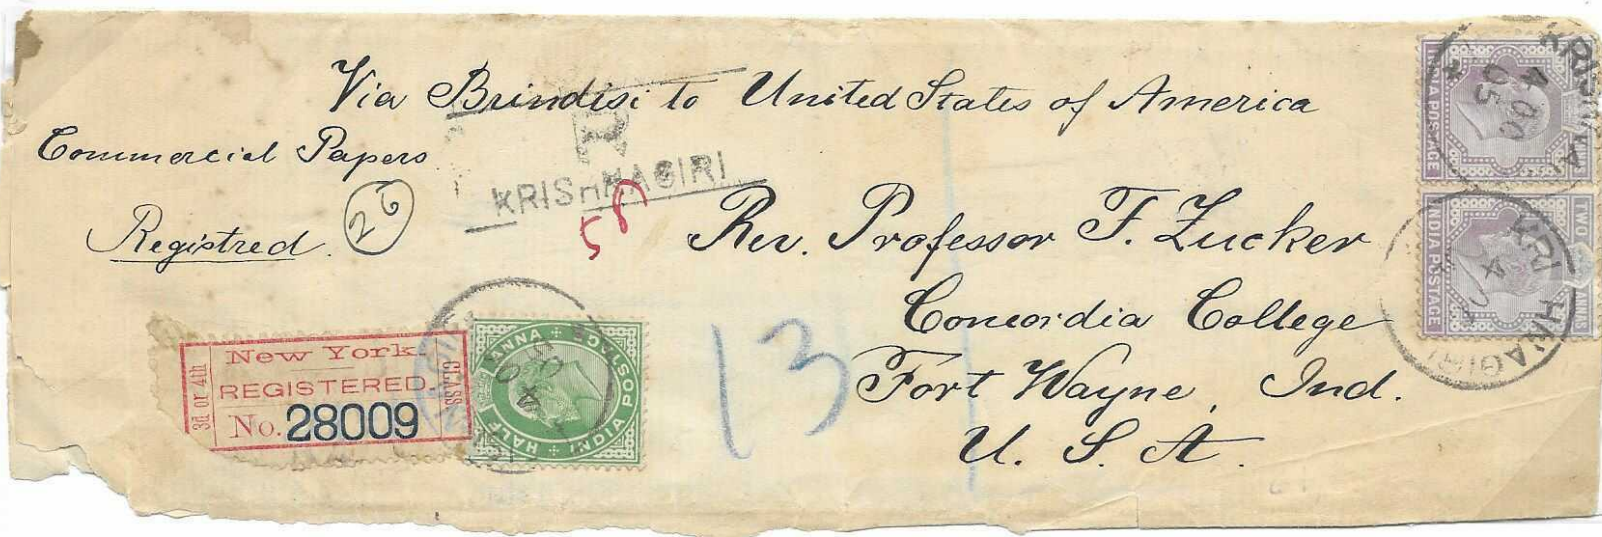 Via Brindisi to United States of America
Commercial Papers
Registred.
26
KRISHNAGIRI
Rev. Professor F. Zucker
Concordia College
Fort Wayne, Ind.
U. S. A.
13
New York.
REGISTERED.
No. 28009
3d or 4th
CLASS
HALF ANNA
INDIA POSTAGE
INDIA POSTAGE
INDIA POSTAGE
TWO
4 OC
05